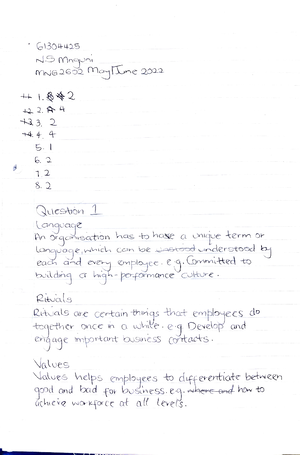 61304425
N.S Mnguni
MNG2602 May/June 2022
1. 2
2. 4
3. 2
4. 4
5. 1
6. 2
7. 2
8. 2
Question 1
Language
An organisation has to have a unique term or
language, which can be understood by
each and every employee. e.g. Committed to
building a high-performance culture.
Rituals
Rituals are certain things that employees do
together once in a while. e.g Develop and
engage important business contacts.
Values
Values helps employees to differentiate between
good and bad for business. e.g. how to
achieve workforce at all levels.